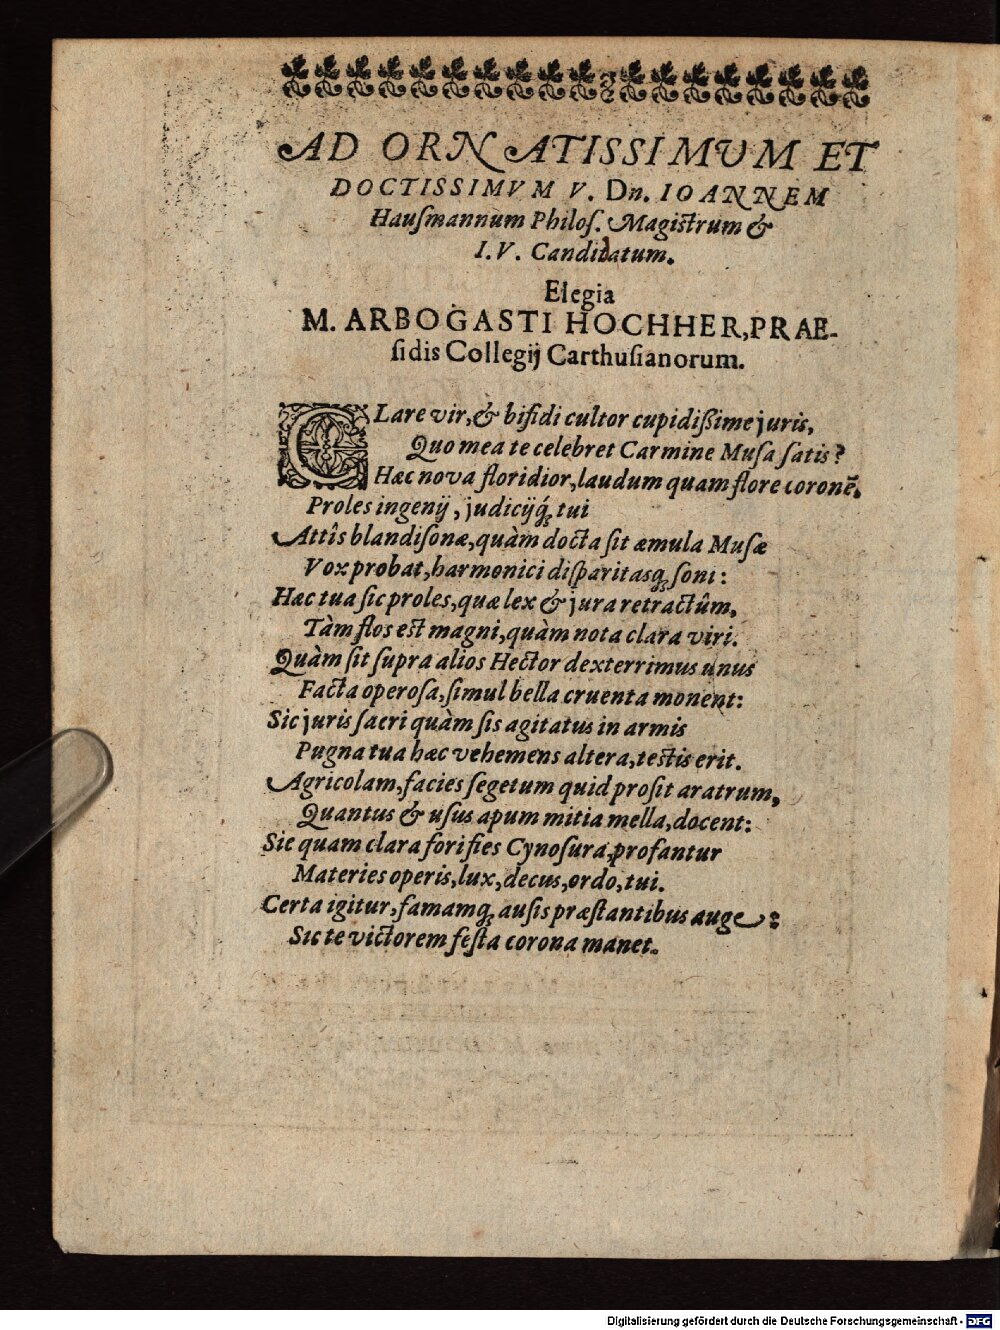 AD ORNATISSIMUM ET
DOCTISSIMVM V. Dn. IOANNEM
Hauſmannum Philoſ. Magiſtrum &
I. V. Candidatum.
Elegia
M. ARBOGASTI HOCHHER, PRAE-
ſidis Collegij Carthuſianorum.
CLare vir, & bifidi cultor cupidiſſime juris,
Quo mea te celebret Carmine Muſa ſatis?
Hæc nova floridior, laudum quam flore coronē,
Proles ingenij, judicijq́; tui
Attîs blandiſonæ, quàm docta ſit æmula Muſæ
Vox probat, harmonici diſparitasq; ſoni:
Hæc tua ſic proles, quæ lex & jura retractûm,
Tàm flos eſt magni, quàm nota clara viri.
Quàm ſit ſupra alios Hector dexterrimus unus
Facta operoſa, ſimul bella cruenta monent:
Sic juris ſacri quàm ſis agitatus in armis
Pugna tua hæc vehemens altera, teſtis erit.
Agricolam, facies ſegetum quid proſit aratrum,
Quantus & uſus apum mitia mella, docent:
Sic quam clara fori fies Cynoſura, profantur
Materies operis, lux, decus, ordo, tui.
Certa igitur, famamq; auſis præſtantibus auge:
Sic te victorem feſta corona manet.
Digitalisierung gefördert durch die Deutsche Forschungsgemeinschaft - DFG